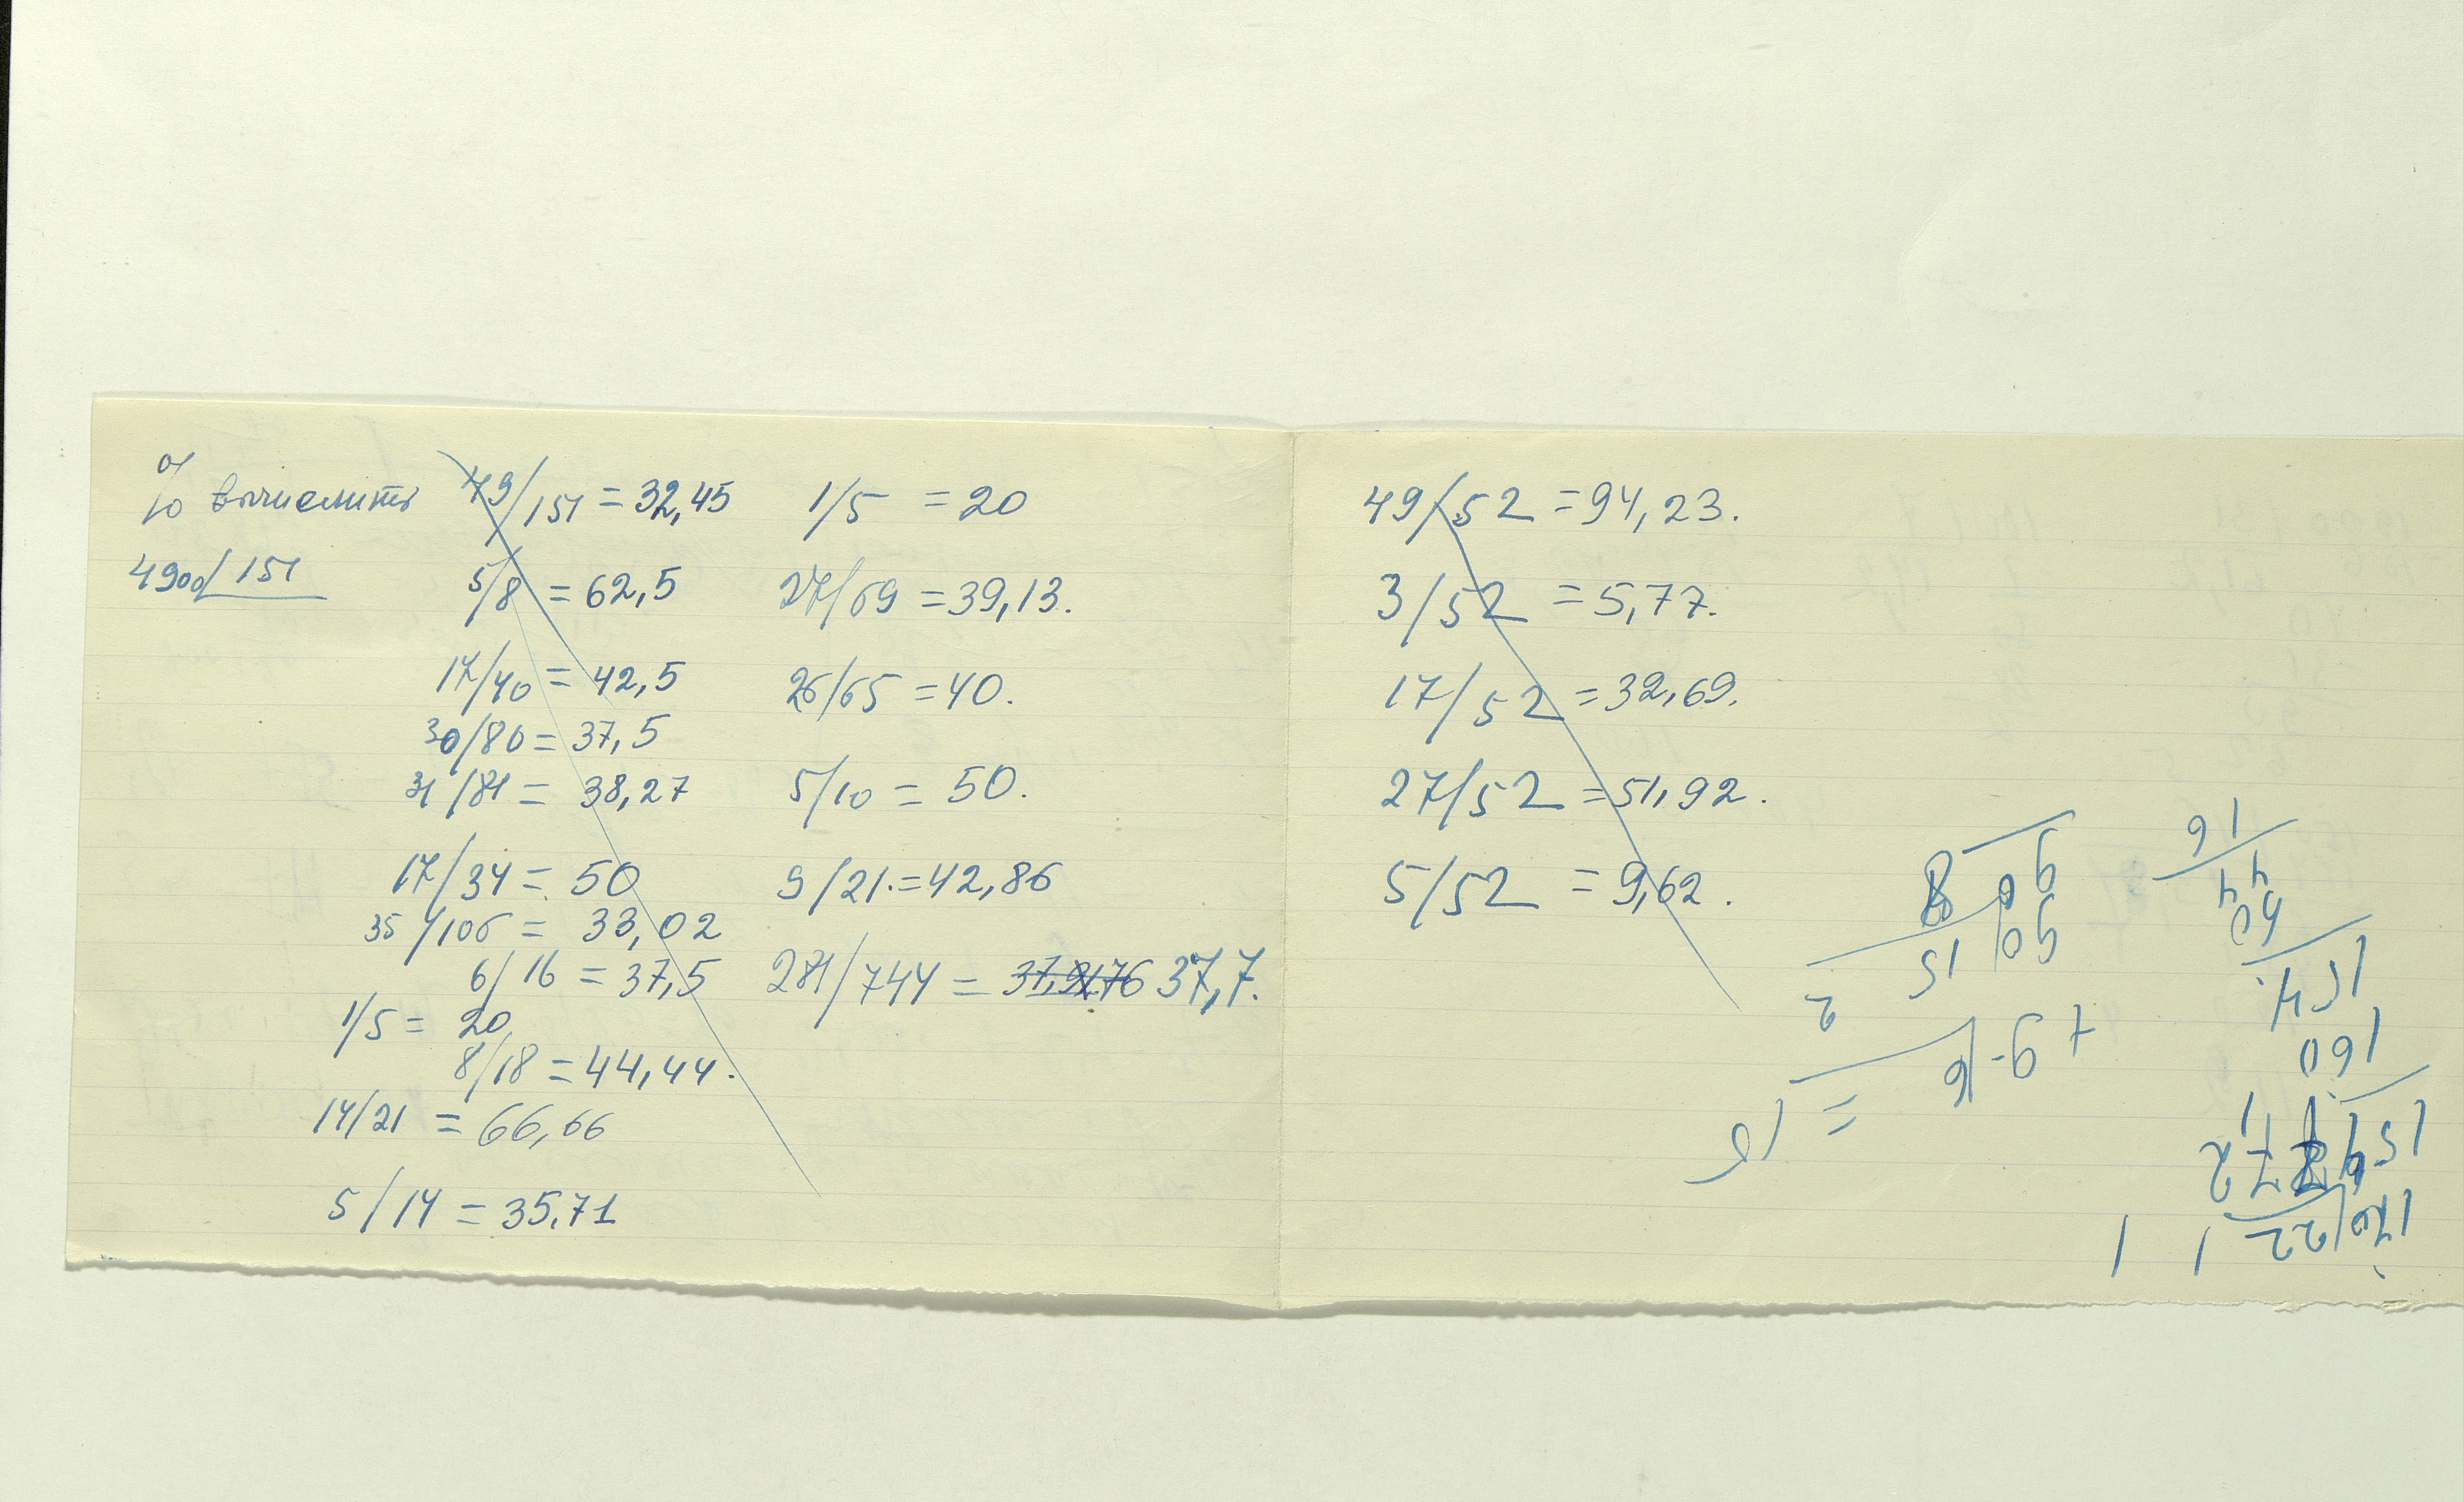 % вычислить
4900/151
49/151 = 32,45
5/8 = 62,5
17/40 = 42,5
30/80 = 37,5
31/81 = 38,27
17/34 = 50
35/106 = 33,02
6/16 = 37,5
1/5 = 20
8/18 = 44,44.
14/21 = 66,66
5/14 = 35,71
1/5 = 20
27/69 = 39,13.
26/65 = 40.
5/10 = 50.
9/21. = 42,86
281/744 = 37,7.
49/52 = 94,23.
3/52 = 5,77.
17/52 = 32,69.
27/52 = 51,92.
5/52 = 9,62.
16
44
60
154
160